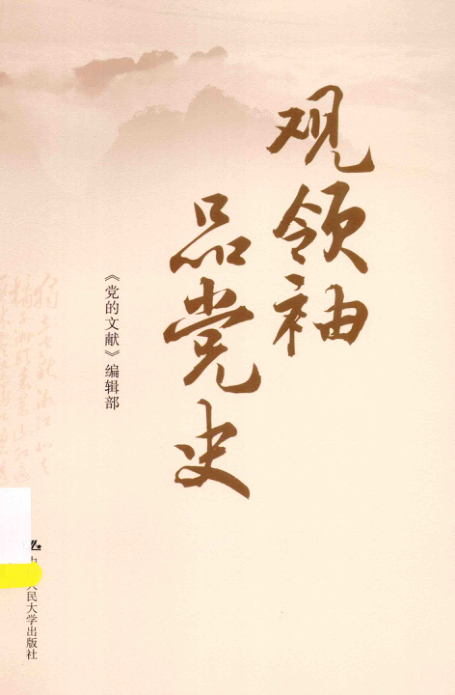 观领袖
品党史
《党的文献》编辑部
人民大学出版社